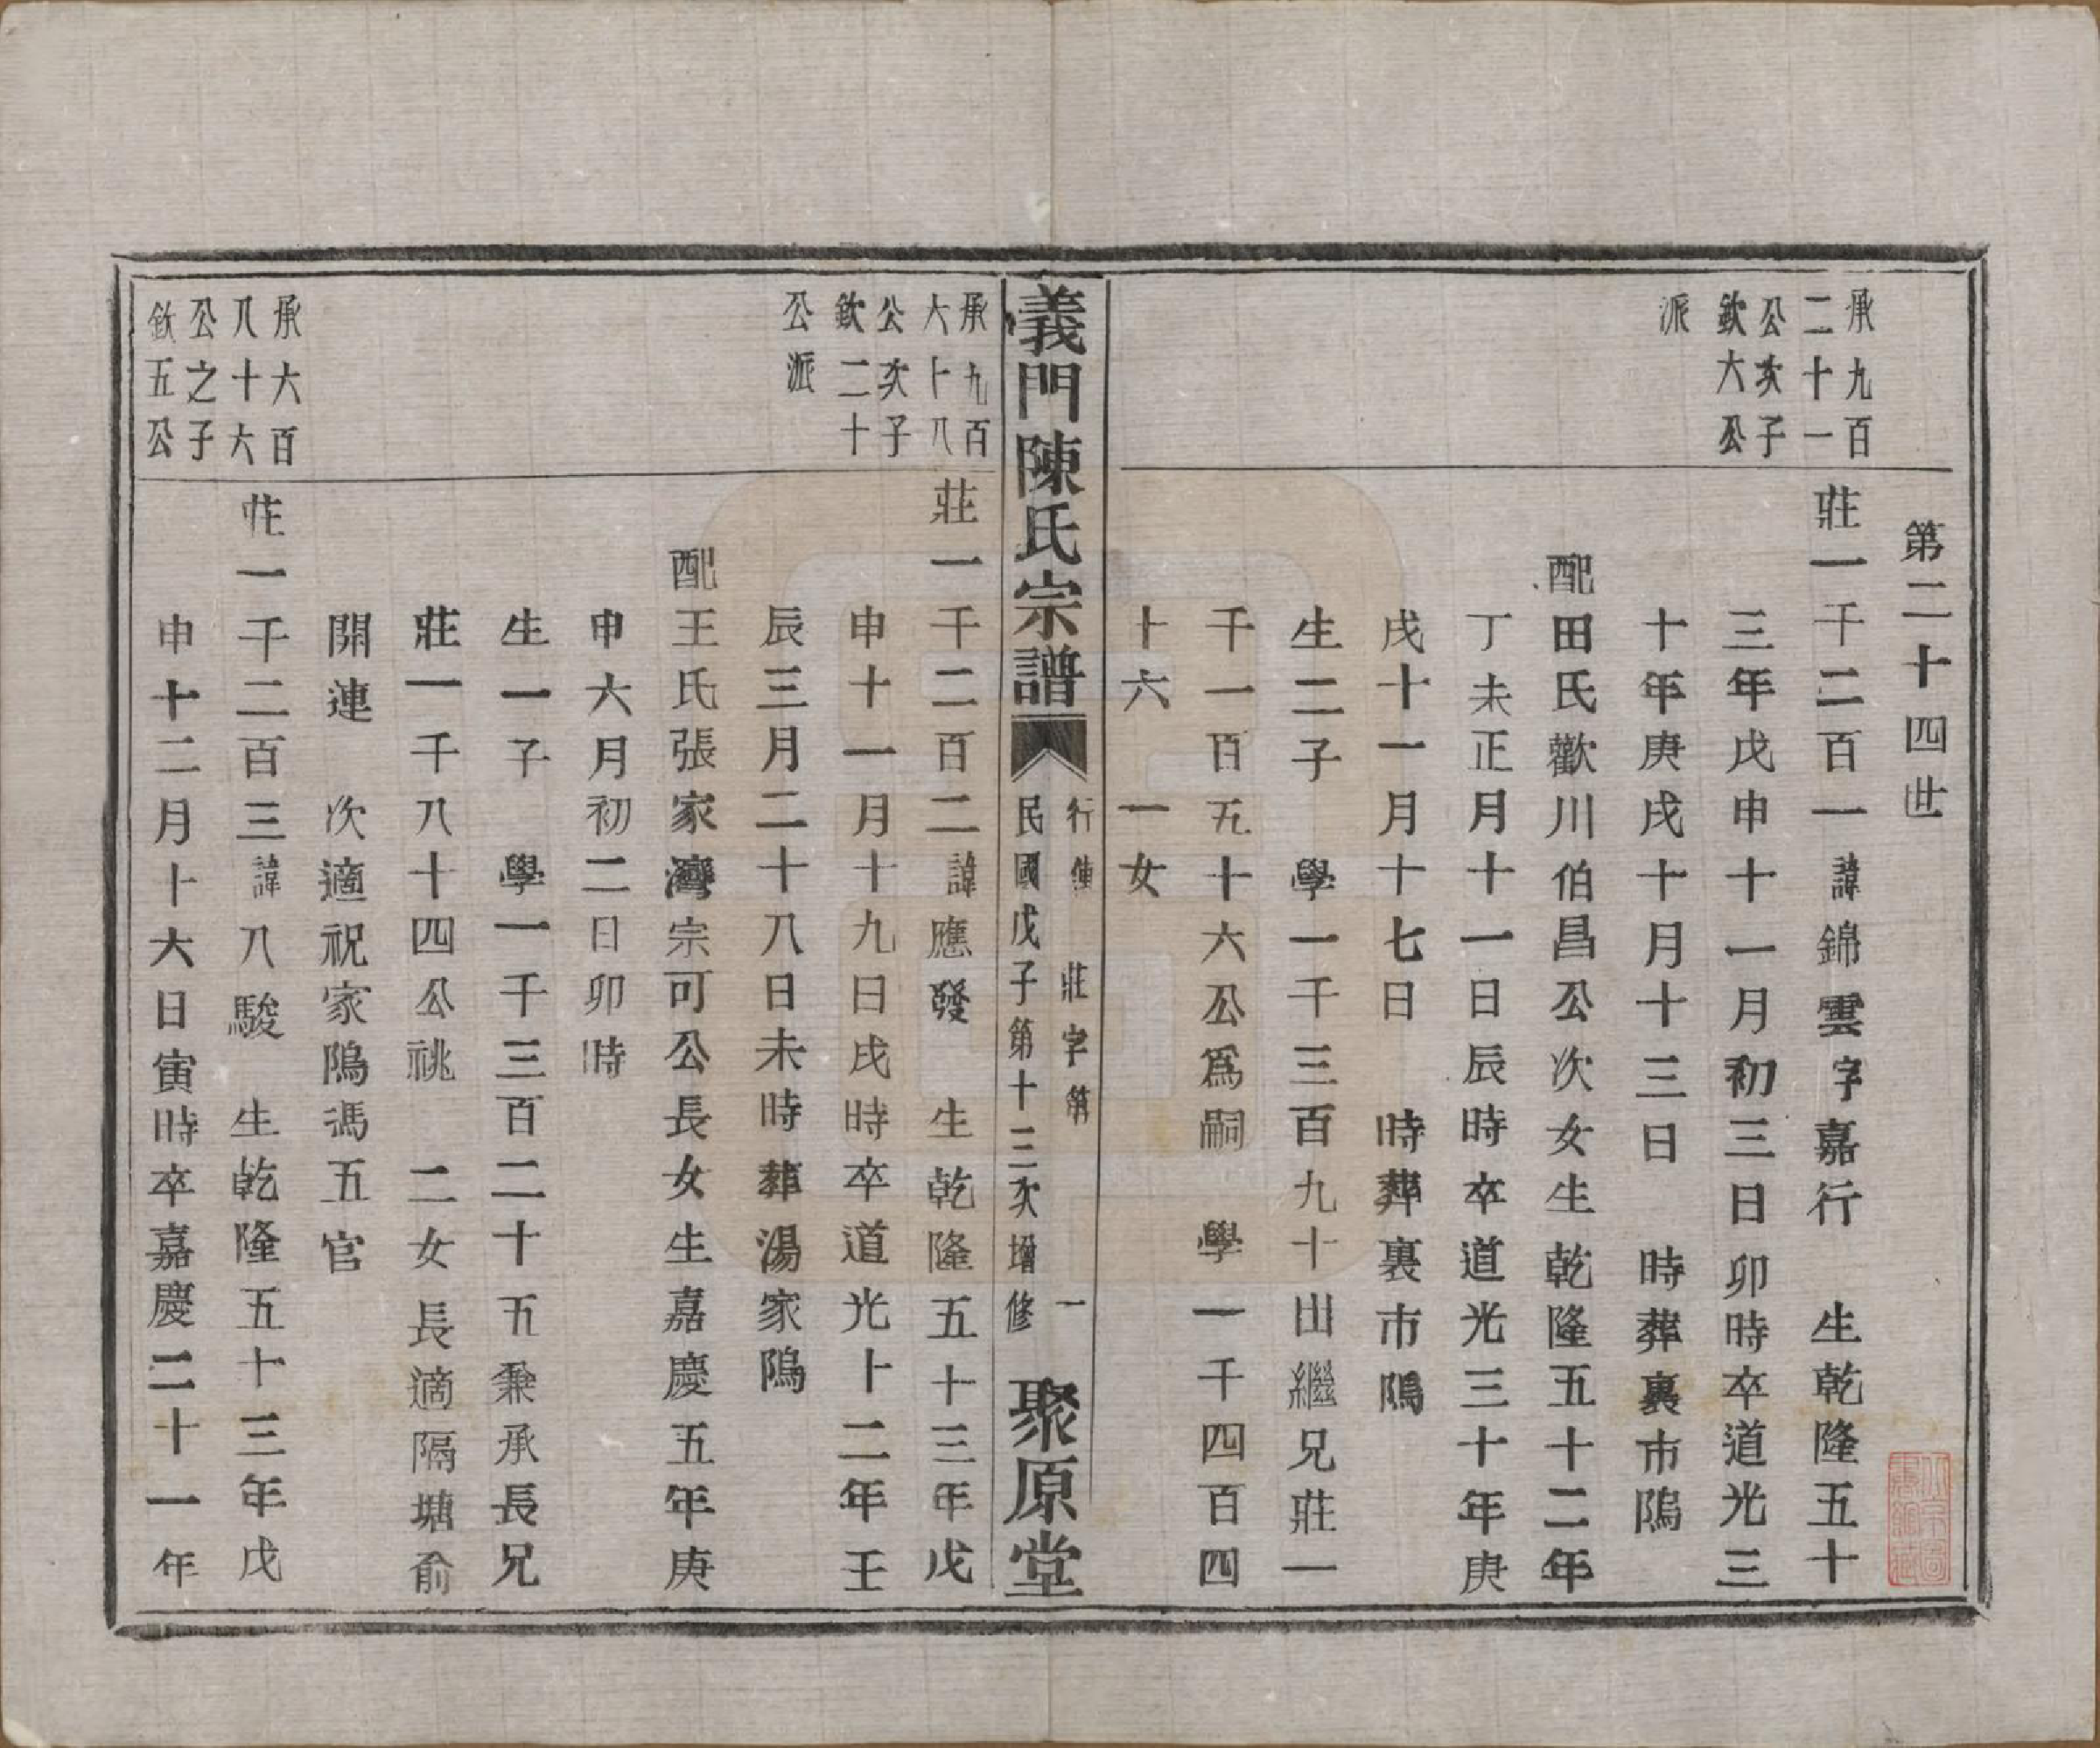 第二十四世
承九百
二十一
公次子
欽六公
派
莊一千二百一諱錦雲字嘉行　生乾隆五十
三年戊申十一月初三日卯時卒道光三
十年庚戌十月十三日　時葬裏市隝
配田氏歡川伯昌公次女生乾隆五十二年
丁未正月十一日辰時卒道光三十年庚
戌十一月十七日　時葬裏市隝
生二子　學一千三百九十出繼兄莊一
千一百五十六公爲嗣　學一千四百四
十六　一女
義門陳氏宗譜
行傳　莊字第　一
民國戊子第十三次增修
聚原堂
承九百
六十八
公次子
欽二十
公派
莊一千二百二諱應發　生乾隆五十三年戊
申十一月十九日戌時卒道光十二年壬
辰三月二十八日未時葬湯家隝
配王氏張家灣宗可公長女生嘉慶五年庚
申六月初二日卯時
生一子　學一千三百二十五兼承長兄
莊一千八十四公祧　二女長適隔塘俞
開連　次適祝家隝馮五官
承六百
八十六
公之子
欽五公
莊一千二百三諱八駿　生乾隆五十三年戊
申十二月十六日寅時卒嘉慶二十一年